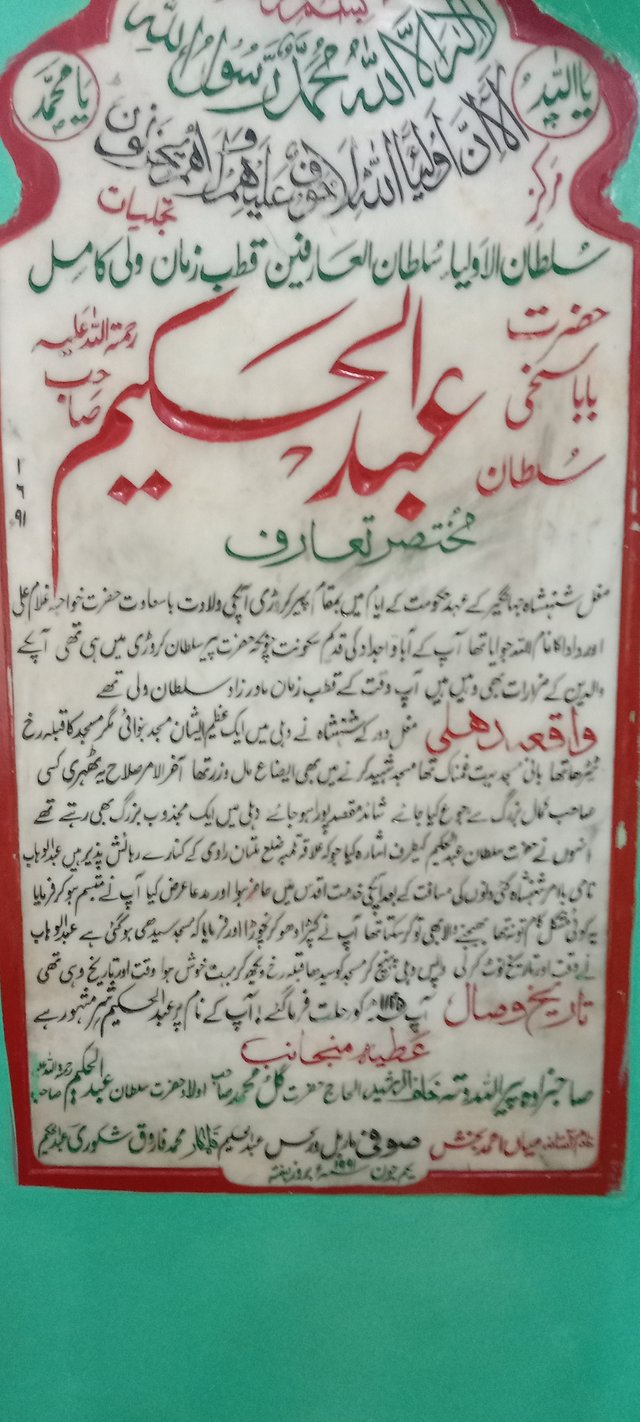 بسم
لا الہ الا اللہ محمد رسول اللہ
یا اللہ
یا محمد
الا ان اولیاء اللہ لا خوف علیھم ولا ھم یحزنون
مرکز تجلیات
سلطان الاولیاء سلطان العارفین قطب زمان ولی کامل
حضرت بابا سخی سلطان
عبدالحکیم
صاحب رحمۃ اللہ علیہ
۱
۶
۹۱ء
مختصر تعارف
مغل شہنشاہ جہانگیر کے عہد حکومت کے ایام میں بمقام پیر کروڑی آپکی ولادت باسعادت حضرت خواجہ غلام علی
اور دادا کا نام اللہ جوایا تھا آپ کے آباؤ اجداد کی قدیم سکونت چونکہ حضرت پیر سلطان کروڑی میں ہی تھی آپکے
والدین کے مزارات بھی وہیں ہیں آپ وقت کے قطب زمان مادرزاد سلطان ولی تھے
واقعہ دھلی مغل دور کے شہنشاہ نے دہلی میں ایک عظیم الشان مسجد بنوائی مگر مسجد کا قبلہ رخ
ٹیڑھا تھا بانی مسجد بہت غمناک تھا مسجد شہید کرنے میں بھی ایضاع مال و زر تھا آخر الامر صلاح یہ ٹھہری کسی
صاحب کمال بزرگ سے رجوع کیا جائے شائد مقصد پورا ہو جائے دہلی میں ایک مجذوب بزرگ بھی رہتے تھے
انہوں نے حضرت سلطان عبدالحکیم کیطرف اشارہ کیا جو کہ علاقہ تلمبہ ضلع ملتان راوی کے کنارے رہائش پذیر ہیں عبدالوہاب
نامی بلامر شہنشاہ کئی دنوں کی مسافت کے بعد آپکی خدمت اقدس میں حاضر ہوا اور مدعا عرض کیا آپ نے متبسم ہو کر فرمایا
یہ کوئی مشکل کام تو نہ تھا بھیجنے والا بھی تو کر سکتا تھا آپ نے کپڑا دھو کر نچوڑا اور فرمایا کہ مسجد سیدھی ہو گئی ہے عبدالوہاب
نے وقت اور تاریخ نوٹ کر لی واپس دہلی پہنچ کر مسجد کو سیدھا قبلہ رخ دیکھ کر بہت خوش ہوا وقت اور تاریخ وہی تھی
تاریخ وصال آپ کو رحلت فرما گئے! آپ کے نام پر عبدالحکیم شہر مشہور ہے
عطیہ منجانب
صاحبزادہ پیر اللہ دتہ خلف الرشید الحاج حضرت گل محمد صاحب اولاد حضرت سلطان عبدالحکیم صاحب رحمۃ اللہ علیہ
خادم آستانہ میاں احمد بخش صوفی ماربل ورکس عبدالحکیم فنکار محمد فاروق شکوری عبدالحکیم
یکم جون ۱۹۹۱ء بروز ہفتہ